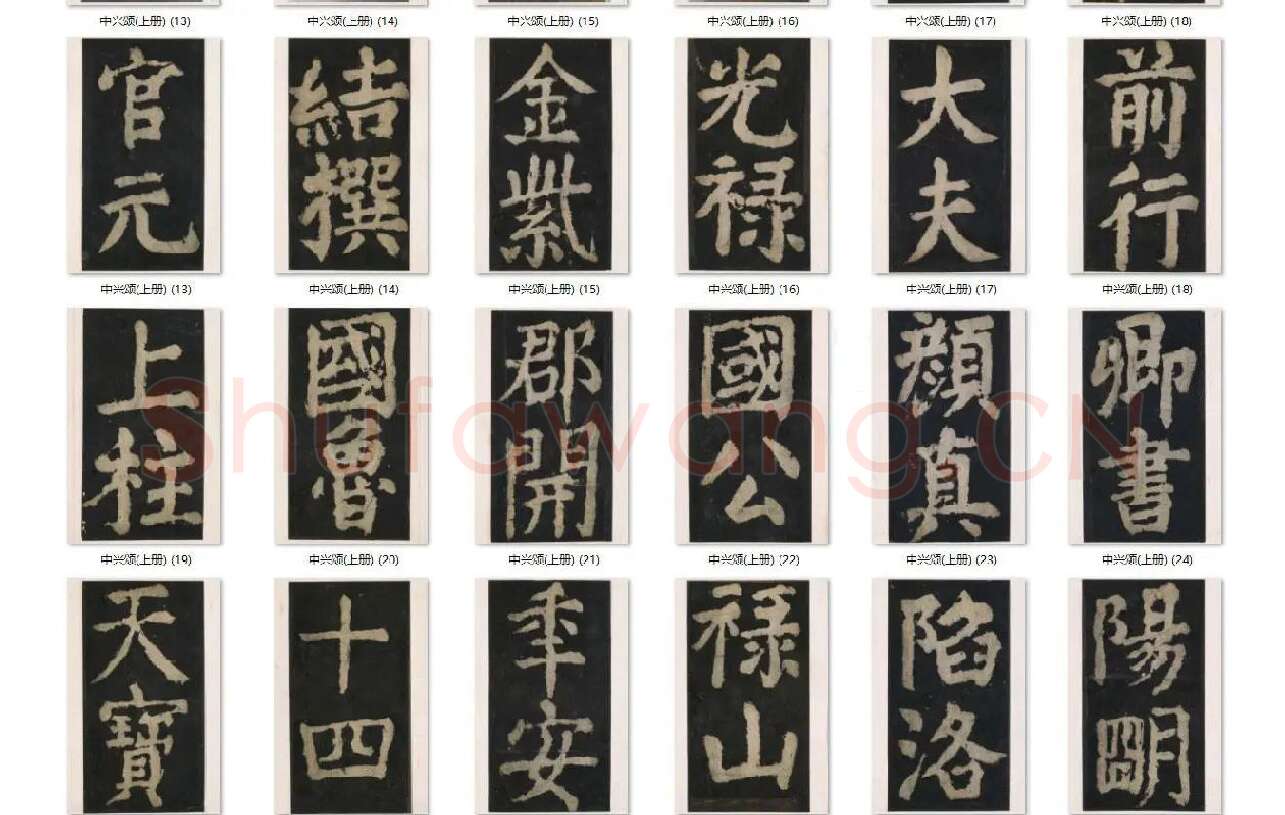 中兴颂(上册) (13)
中兴颂(上册) (14)
中兴颂(上册) (15)
中兴颂(上册) (16)
中兴颂(上册) (17)
中兴颂(上册) (18)
官元
結撰
金紫
光禄
大夫
前行
中兴颂(上册) (13)
中兴颂(上册) (14)
中兴颂(上册) (15)
中兴颂(上册) (16)
中兴颂(上册) (17)
中兴颂(上册) (18)
上柱
國魯
郡開
國公
顏真
卿書
Shufawang.CN
中兴颂(上册) (19)
中兴颂(上册) (20)
中兴颂(上册) (21)
中兴颂(上册) (22)
中兴颂(上册) (23)
中兴颂(上册) (24)
天寶
十四
年安
禄山
陷洛
陽明